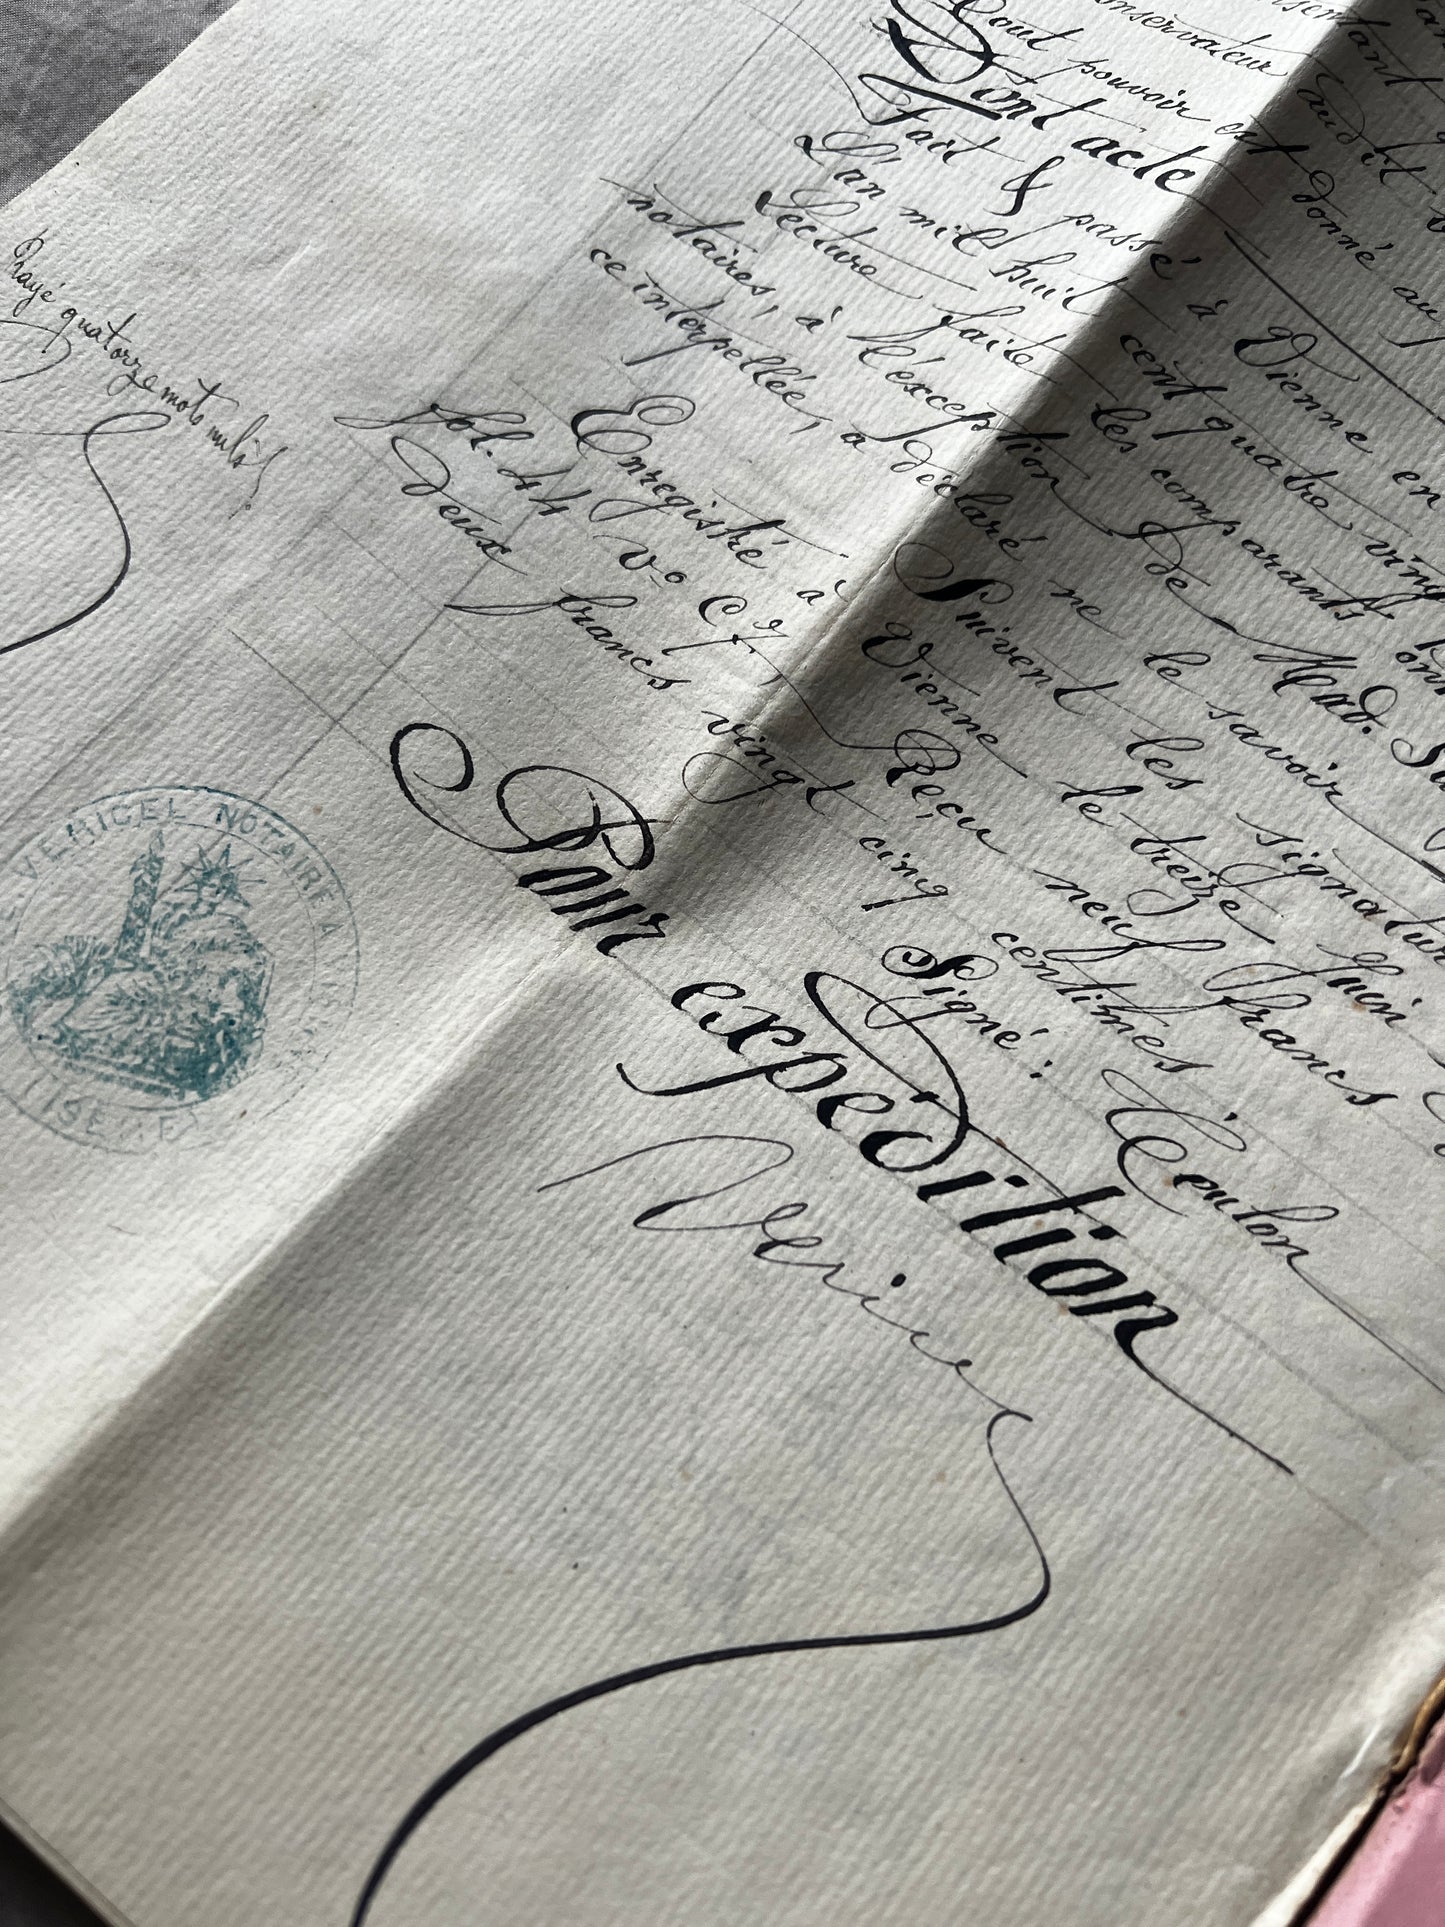 conservateur
Tout pouvoir est donné au
Dont acte
Fait & passé à Vienne en
L'an mil huit cent quatre vingt
Lecture faite les comparants ont
notaires, à l'exception de Mad.
ce interpellée, a déclaré ne le savoir
Suivent les signatures
Enregistré à Vienne le treize Juin
fol. 44 v° C 7. Reçu neuf francs
Deux francs vingt cinq centimes
Signé: Coulon
Pour expédition
Rayé quatorze mots nuls
VERICEL NOTAIRE A
ISERE